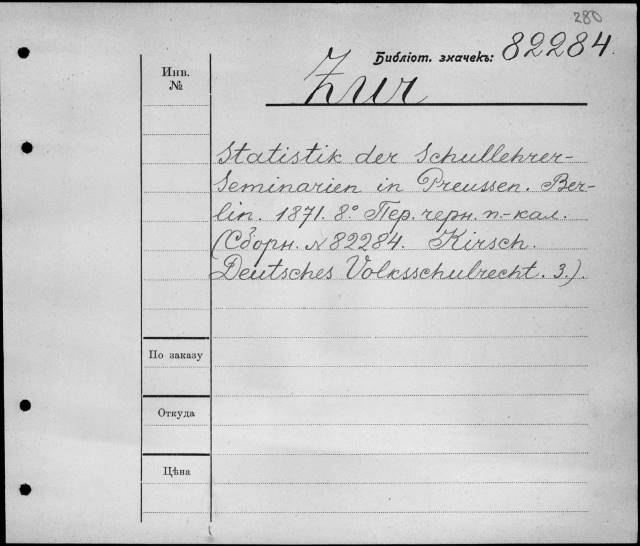 280
Библіот. значекъ: 82284.
Инв.
№
Zur
Statistik der Schullehrer-
Seminarien in Preussen. Ber-
lin. 1871. 8º Пер. черн. п-кал.
(Сборн. № 82284. Kirsch.
Deutsches Volksschulrecht. 3.).
По заказу
Откуда
Цѣна